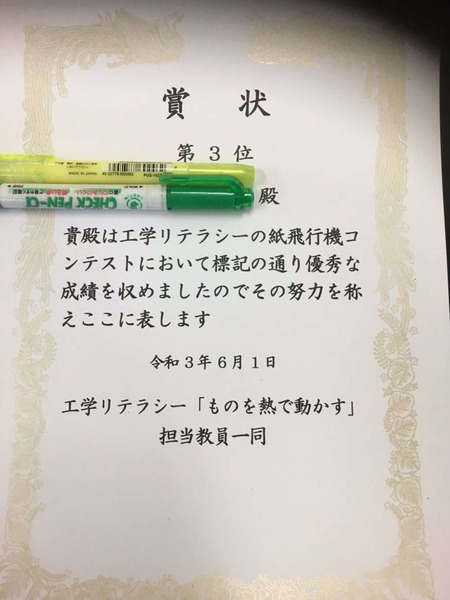 賞 状
第 3 位
MADE IN JAPAN
CHECK PEN-α
殿
貴殿は工学リテラシーの紙飛行機コ
ンテストにおいて標記の通り優秀な
成績を収めましたのでその努力を称
えここに表します
令和3年6月1日
工学リテラシー「ものを熱で動かす」
担当教員一同